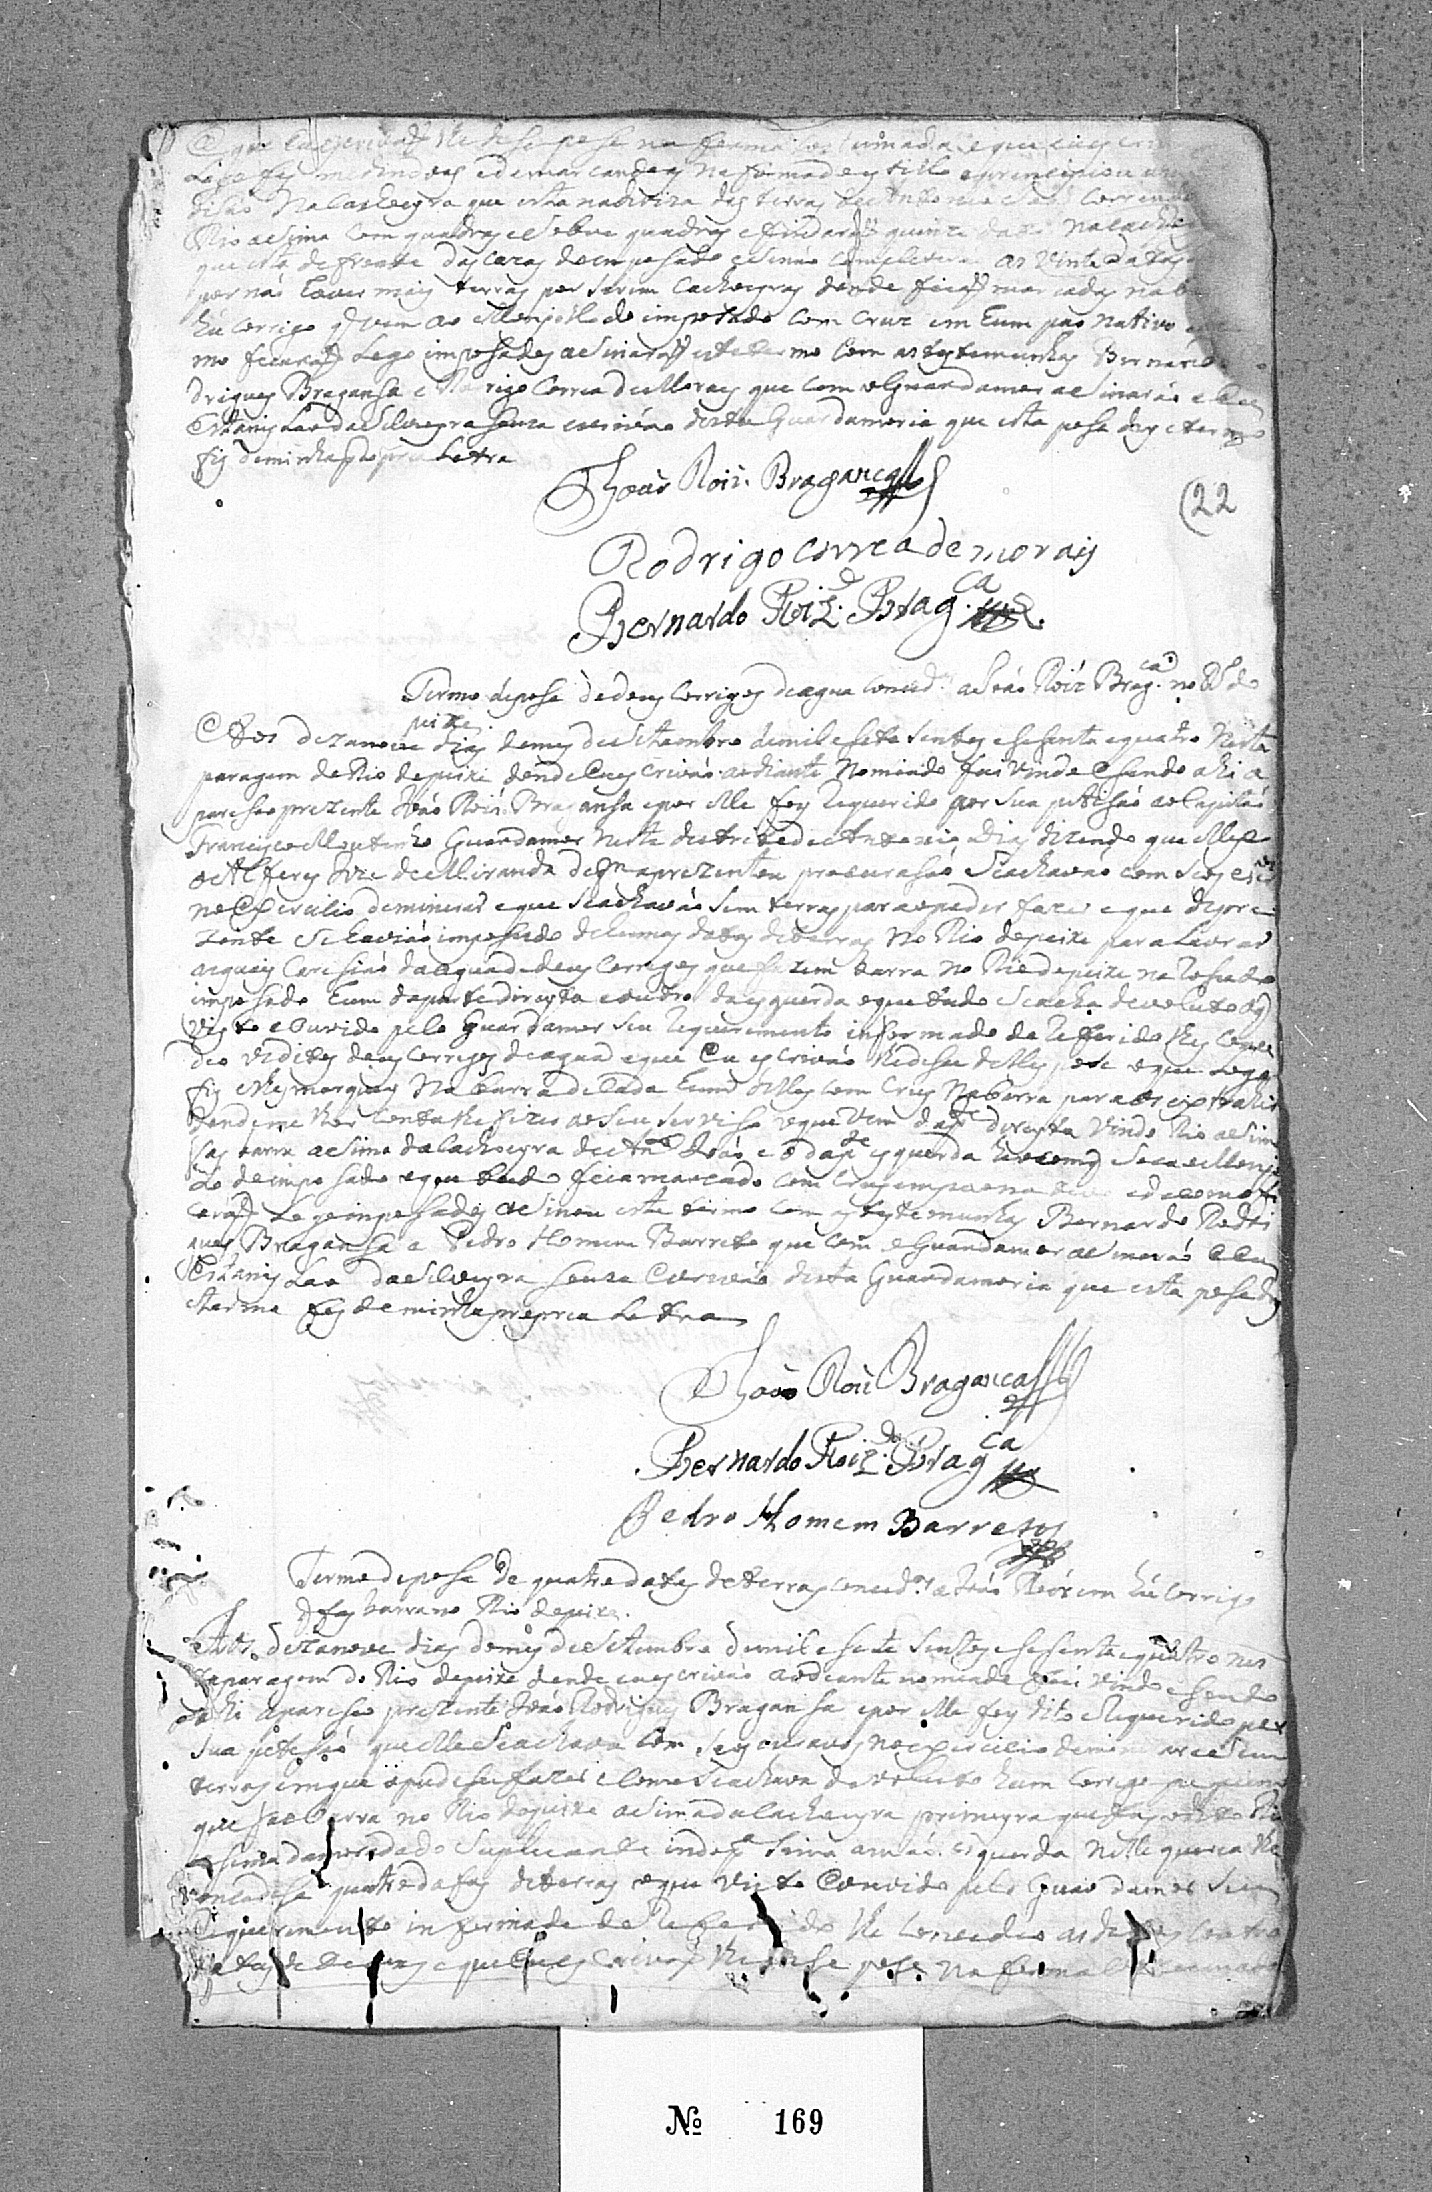 que eu escrivaõ lhe dese pose na forma costumada e que eu escri
Logo fis medindoas edemarcandoas na forma do estillo eprincipiou
disáo Na Cachoeyra que esta nadiviza das terras de Antonio Correndo
Rio asima Com quadras e Sobre quadras e findaraõ quinze datas na cachoe
que está de frente das cazas do emposado as Vinte datas
por nás Eaver mais terras por Serem Cachoeyras donde ficaõ marcadas na
hũ Corrigo q vem ao Monjollo do imposado Com Cruz em hum pao Nativo
mo ficaraõ Logo imposados asinaraõ este termo Com as testemunhas Bernardo
drigues Bragansa e Rodrigo Correa de Moraes que com o Guardamor asinaráo e Eu
Estanis Lao da Silveyra Souza escriváo desta Guardamoria que esta pose das e termo
fis deminha propria Letra
Joaõ Roiz Bragança
(22
Rodrigo Correa de morais
Bernardo Roiz Brag.ca
Termo depose de dous Corrigos de agua conced.os a Joáo Roiz Brag.ca no Rº do
peixe
Aos dezanove dias domes de Setembro de mil e sete Sentos e sesenta e quatro Nesta
paragem do Rio dopeixe donde Eu escriváo aodiante Nomiado fui vindo E sendo ahi a
pareseo prezente Joáo Roiz Bragansa e por elle foy Requerido por sua petisáo ao Capitáo
Francisco Moutinho Guardamor Neste destrito de Antonio Dias dizendo que elle e
o Alferes Joze de Miranda de qm aprezentou procurasáo Seachaváo com seos escr.os
no Exersisio deminerar e que Seachaváo Sem terras para o poder fazer e que depre
zente Se aviáo imposado de humas datas de terras No Rio dopeixe para Lavrar
as quais Caresiáo da agua de dous Corrigos que fazem barra no Rio dopeixe na Testa do
imposado hum daparte direyta e outro da esquerda e que tudo Seacha devoluto o q
visto e ouvido pelo Guardamor Seu Requerimento informado do Referido lhes conce
deo os ditos dous Corrigos de agua e que Eu escriváo lhedese delles pose o que Logo
fis e lhes marquey Na barra de Cada hum delles com Cruz Na barra para os extrahir
donde melhor Conta lhe fizer aoseu serviso o que vem dap.te direyta vindo Rio asima
faz barra asima da Cachoeyra de An.to Joáo e o dap.te esquerda he o em q Seca o Monjo
Lo do imposado e que tudo fica marcado com Cruz em pao nativo e de como fi
caraõ Logo imposados asinou este termo com as testemunhas Bernardo Rodri
gues Bragansa e Pedro Homem Barreto que com o Guardamor asinaráo e Eu
Estanis Lao da Silveyra Souza Escriváo desta Guardamoria que esta pose das
e termo fis de minha propria Letra
Joaõ Roiz Bragança
Bernardo Roiz Brag.ca
Pedro Homem Barreto
Termo depose de quatro datas de terras conced.as a Joáo Roiz em hũ Corrigo
q fas barra no Rio dopeixe.
Aos dezanove dias domes de Setembro demil e sete Sentos e sesenta e quatro nes
ta paragem do Rio dopeixe donde eu escriváo aodiante nomiado fui vindo e sendo
ahi apareseo prezente Joáo Rodrigues Bragansa e por elle foy dito e Requerido por
Sua petisáo que elle Seachava Com Seos escravos no exersisio de minerar e Sem
terras em que o pudese fazer e Como Seachava devoluto hum Corrigo pequeno
que faz barra no Rio dopeixe asima da Cachoeyra primeyra que faz o dito Rio
asima da morada do Suplicante indo p.a sima a máo esquerda Nelle queria lhe
concedese quatro datas de terras o que visto e ouvido pelo Guardamor Seu
Requerimento informado do Referido lhe Concedeo as ditas Coatro
datas de terras e que Eu escrivaõ lhe dese pose na forma Costumada